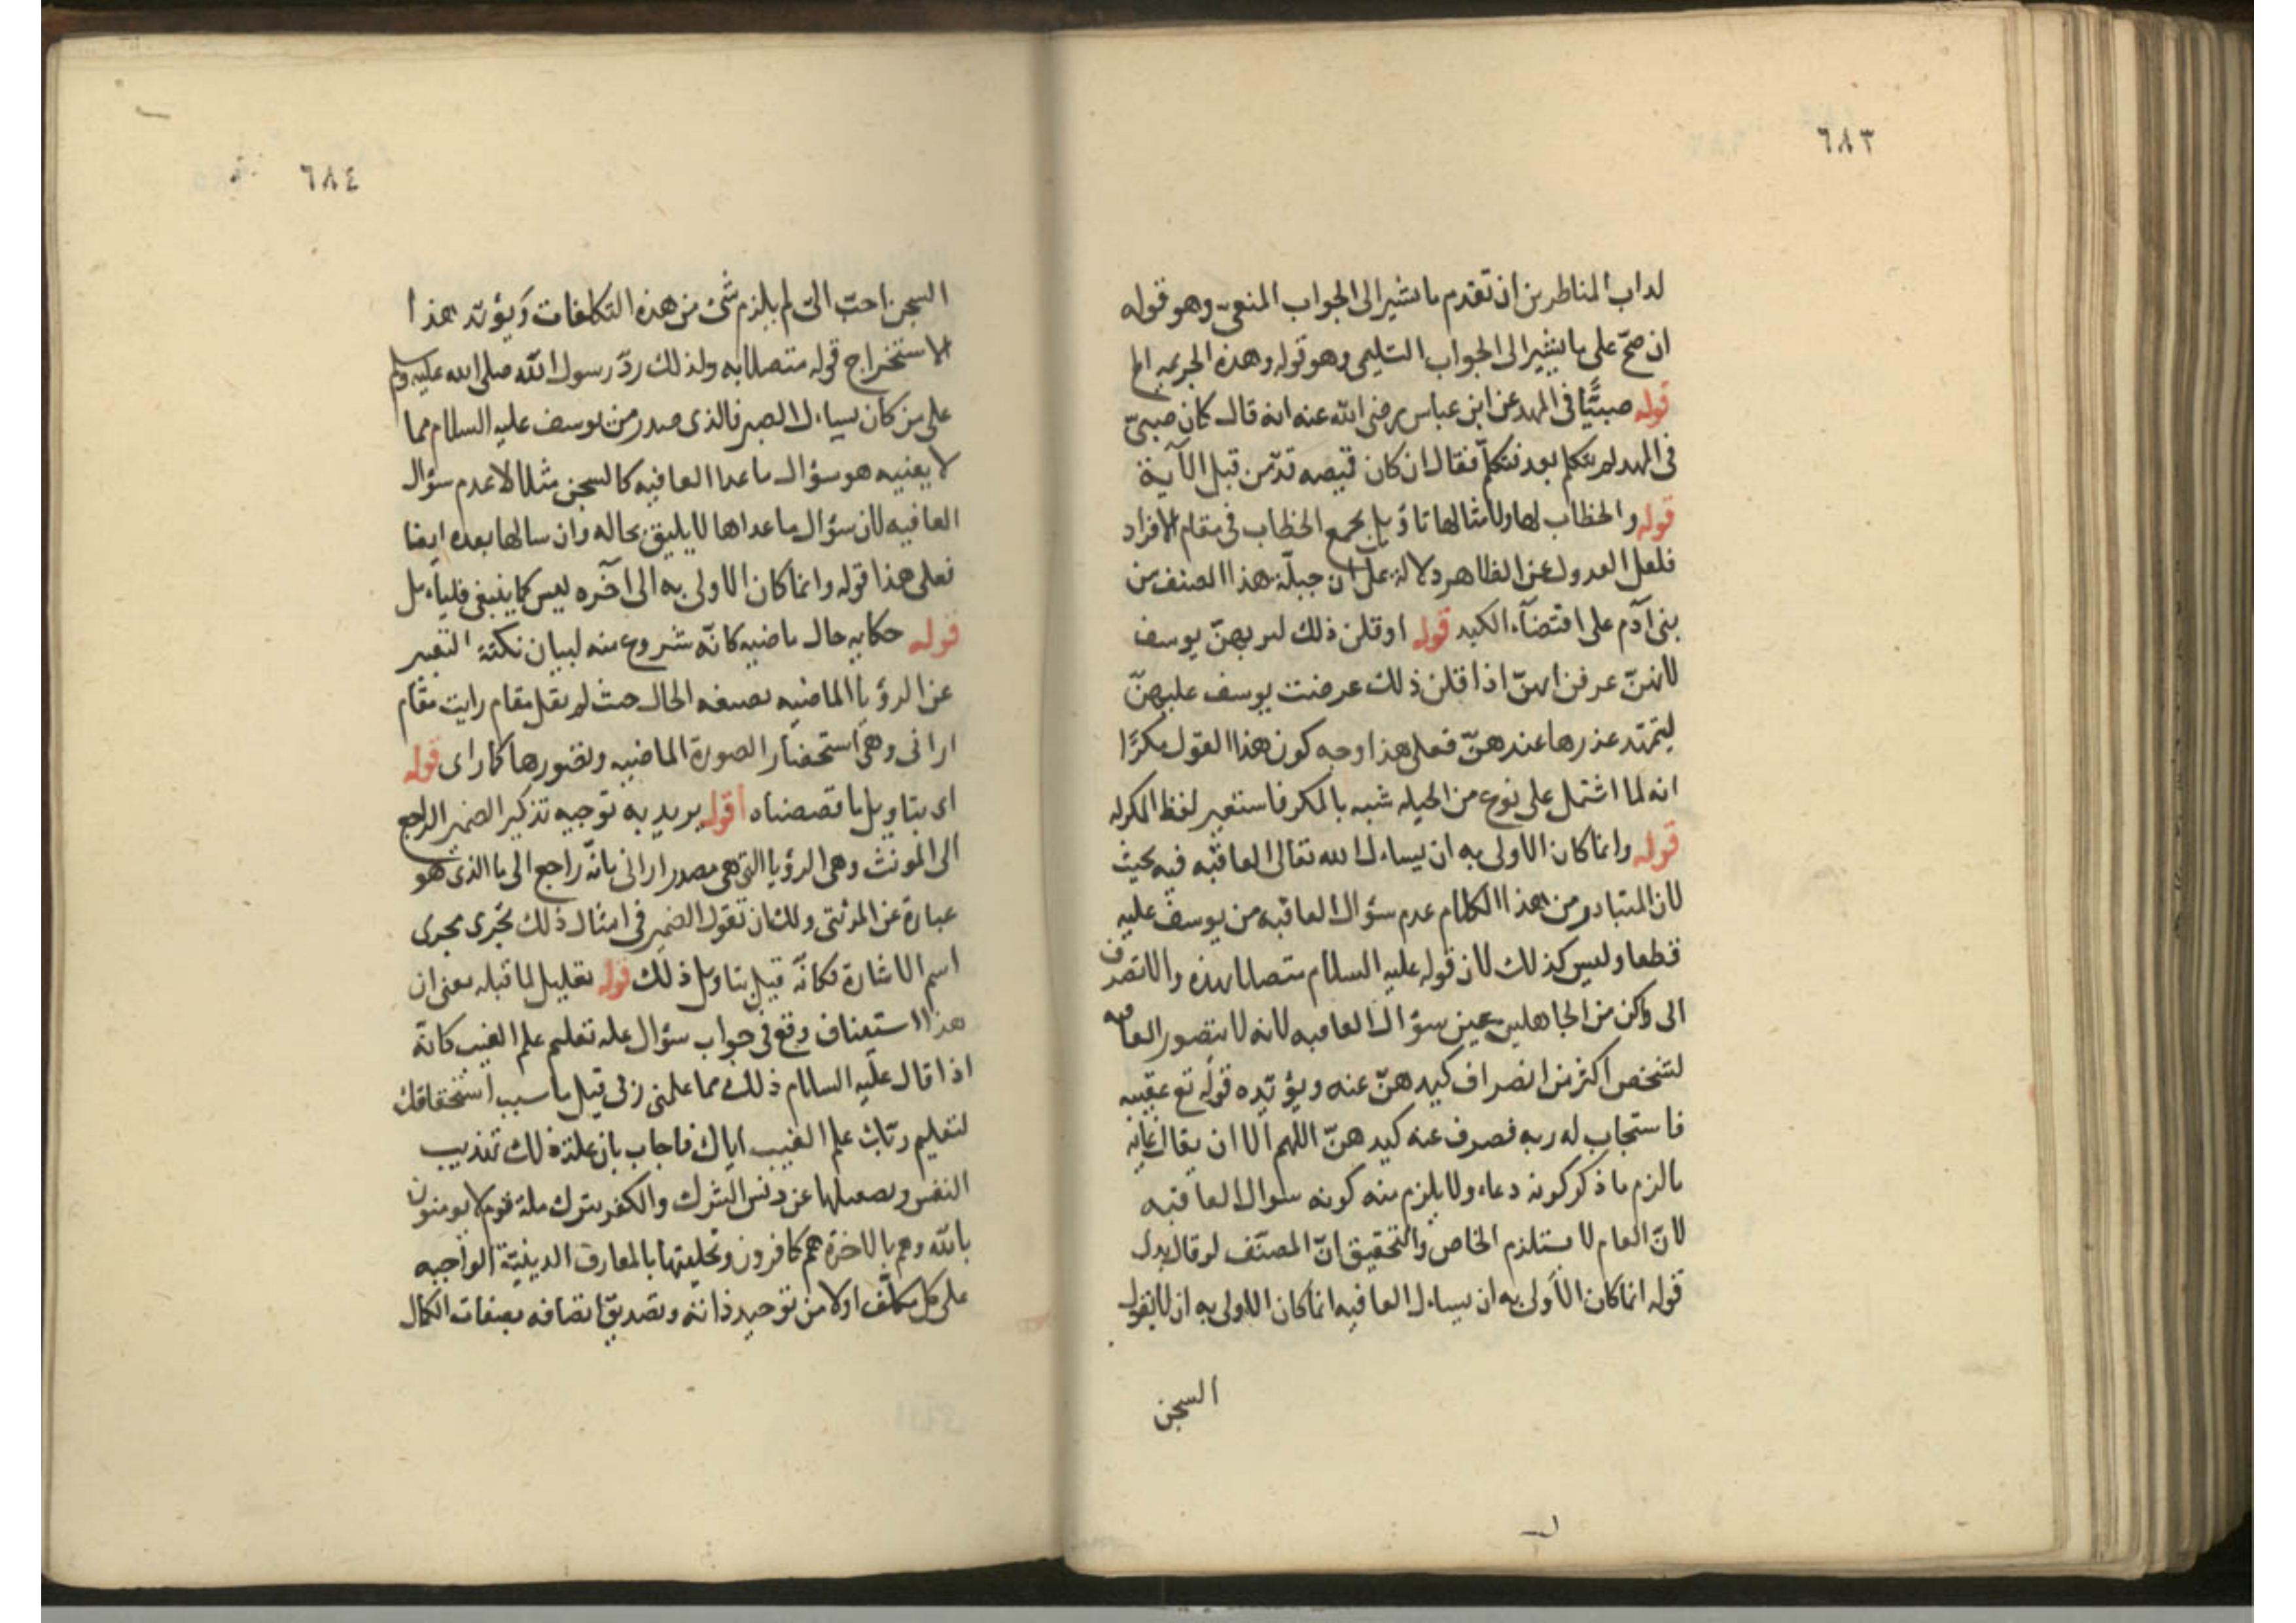 ٦٨٣
لداب المناظرين ان تقدم ما يشير الى الجواب المنعى وهو قوله
ان صح على ما يشير الى الجواب التسليمى وهو قوله وهذه الجريمه الخ
قوله صبيًّا فى المهد عن ابن عباس رضى الله عنه انه قال كان صبىّ
فى المهد لم يتكلم بعد فتكلم فقال ان كان قميصه قدّ من قبل الآية
قوله والخطاب لها ولامثالها تاويل بجمع الخطاب فى مقام الافراد
فلعل العدول عن الظاهر دلالة على ان جبلّة هذا الصنف من
بنى آدم على اقتضاء الكيد قوله او قلن ذلك لير بهنّ يوسف
لانهنّ عرفن انهنّ اذا قلن ذلك عرضت يوسف عليهنّ
ليتمهّد عذرها عندهنّ فعلى هذا وجه كون هذا القول مكرًا
انه لما اشتمل على نوع من الحيله شبه بالمكر فاستعير لفظ المكر له
قوله وانما كان الاولى به ان يساءل الله تعالى العافيه فيه بحيث
لان المتبادر من هذا الكلام عدم سؤال العافيه من يوسف عليه
قطعا وليس كذلك لان قوله عليه السلام متصلا بهذه والا تصرف
الى واكن من الجاهلين عين سؤال العافيه لانه لا يتصور العافيه
لشخص اكثر من انصراف كيدهنّ عنه ويؤيّده قوله تع عقيبه
فاستجاب له ربه فصرف عنه كيدهنّ اللهم الا ان يقال غاية
مالزم ما ذكر كونه دعاء ولا يلزم منه كونه سوال العافيه
لانّ العام لا يستلزم الخاص والتحقيق انّ المصنّف لو قال بدل
قوله انما كان الأولى به ان يساءل العافيه انما كان الاولى به ان لا يقول
السجن
٦٨٤
السجن احبّ الىّ لم يلزم شئ من هذه التكلفات ويؤيّد هذا
الاستخراج قوله متصلا به ولذلك ردّ رسول الله صلى الله عليه وسلم
على من كان يساءل الصبر فالذى صدر من يوسف عليه السلام مما
لا يعنيه هو سؤال ما عدا العافيه كالسجن مثلا لا عدم سؤال
العافيه لان سؤال ما عداها لا يليق بحاله وان سالها بعده ايضا
فعلى هذا قوله وانما كان الاولى به الى آخره ليس كما ينبغى فليتأمل
قوله حكايه حال ماضيه كانّه شروع منه لبيان نكتة التعبير
عن الرؤيا الماضيه بصيغه الحال حيث لم يقل مقام رايت مقام
ارانى وهى استحضار الصورة الماضيه وتصورها كما راى قوله
اى بتاويل ما قصصناه اقول يريد به توجيه تذكير الضمير الراجع
الى المونث وهى الرؤيا التى هى مصدر ارانى بانّه راجع الى ما الذى هو
عبارة عن المرئى ولك ان تقول الضمير فى امثال ذلك يجرى مجرى
اسم الاشارة فكانّه قيل بتاويل ذلك قوله تعليل لما قبله بمعنى ان
هذا استيناف وقع فى جواب سؤال عله تعليم علم الغيب كانّه
اذا قال عليه السلام ذلك مما علمنى ربى قيل ما سبب استحقاقك
لتعليم ربّك علم الغيب اياك فاجاب بان علة ذلك تهذيب
النفس وتصقيلها عن دنس الشرك والكفر بترك ملة قوم لا يومنون
بالله وهم بالاخرة هم كافرون وتحليتها بالمعارف الدينيّة الواجبه
على كل مكلّف اولا من توحيد ذاته وتصديق اتصافه بصفات الكمال